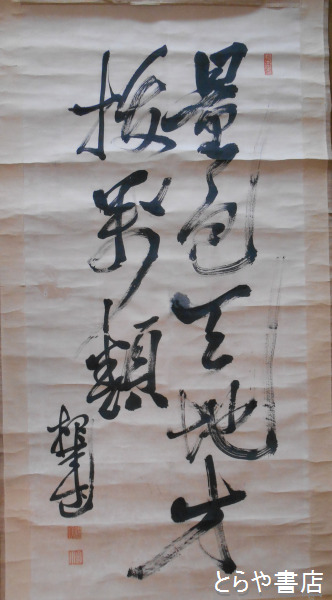 量包天地才
抜万類
とらや書店